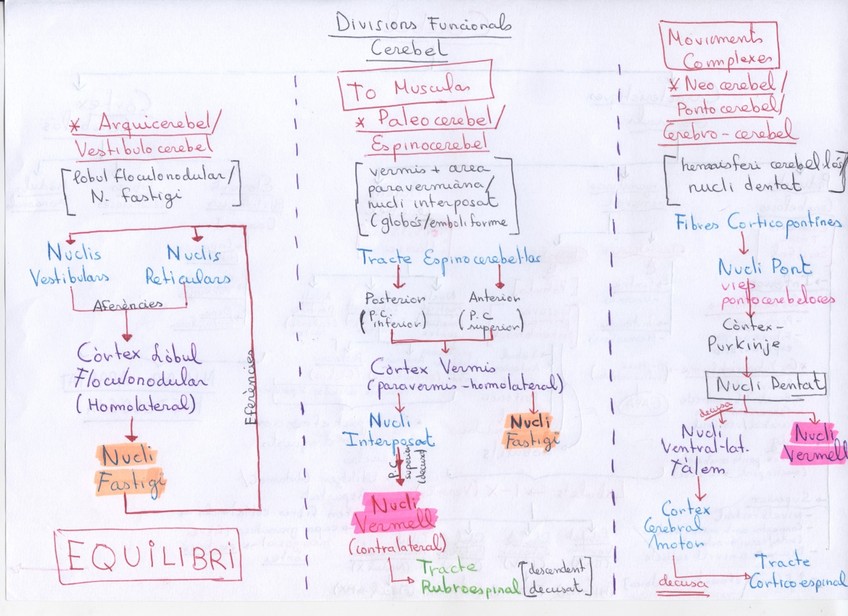 Divisions Funcionals
Cerebel
* Arquicerebel/
Vestibulocerebel
[lobul floculonodular/
N. Fastigi]
Nuclis
Vestibulars
Nuclis
Reticulars
Aferències
Còrtex Lòbul
Floculonodular
(Homolateral)
Nucli
Fastigi
Eferències
EQUILIBRI
To Musculas
* Paleocerebel/
Espinocerebel
[vermis + area
paravermiana/
nucli interposat
(globós/emboliforme]
Tracte Espinocerebel·las
Posterior
(P.C.
inferior)
Anterior
(P.C
superior)
Còrtex Vermis
(paravermis-homolateral)
Nucli
Interposat
Nucli
Fastigi
P.C
superior
(decusa)
Nucli
Vermell
(contralateral)
Tracte
Rubroespinal
[descendent
decusat]
Moviments
Complexes
* Neocerebel/
Pontocerebel/
Cerebro-cerebel
[hemisferi cerebel·lós/
nucli dentat]
Fibres Corticopontines
Nucli Pont
vies
pontocerebeloces
Còrtex-
Purkinje
Nucli Dentat
decusa
Nucli
Ventral-lat.
Tàlem
Nucli
Vermell
Cortex
Cerebral
motor
decusa
Tracte
Corticoespinal